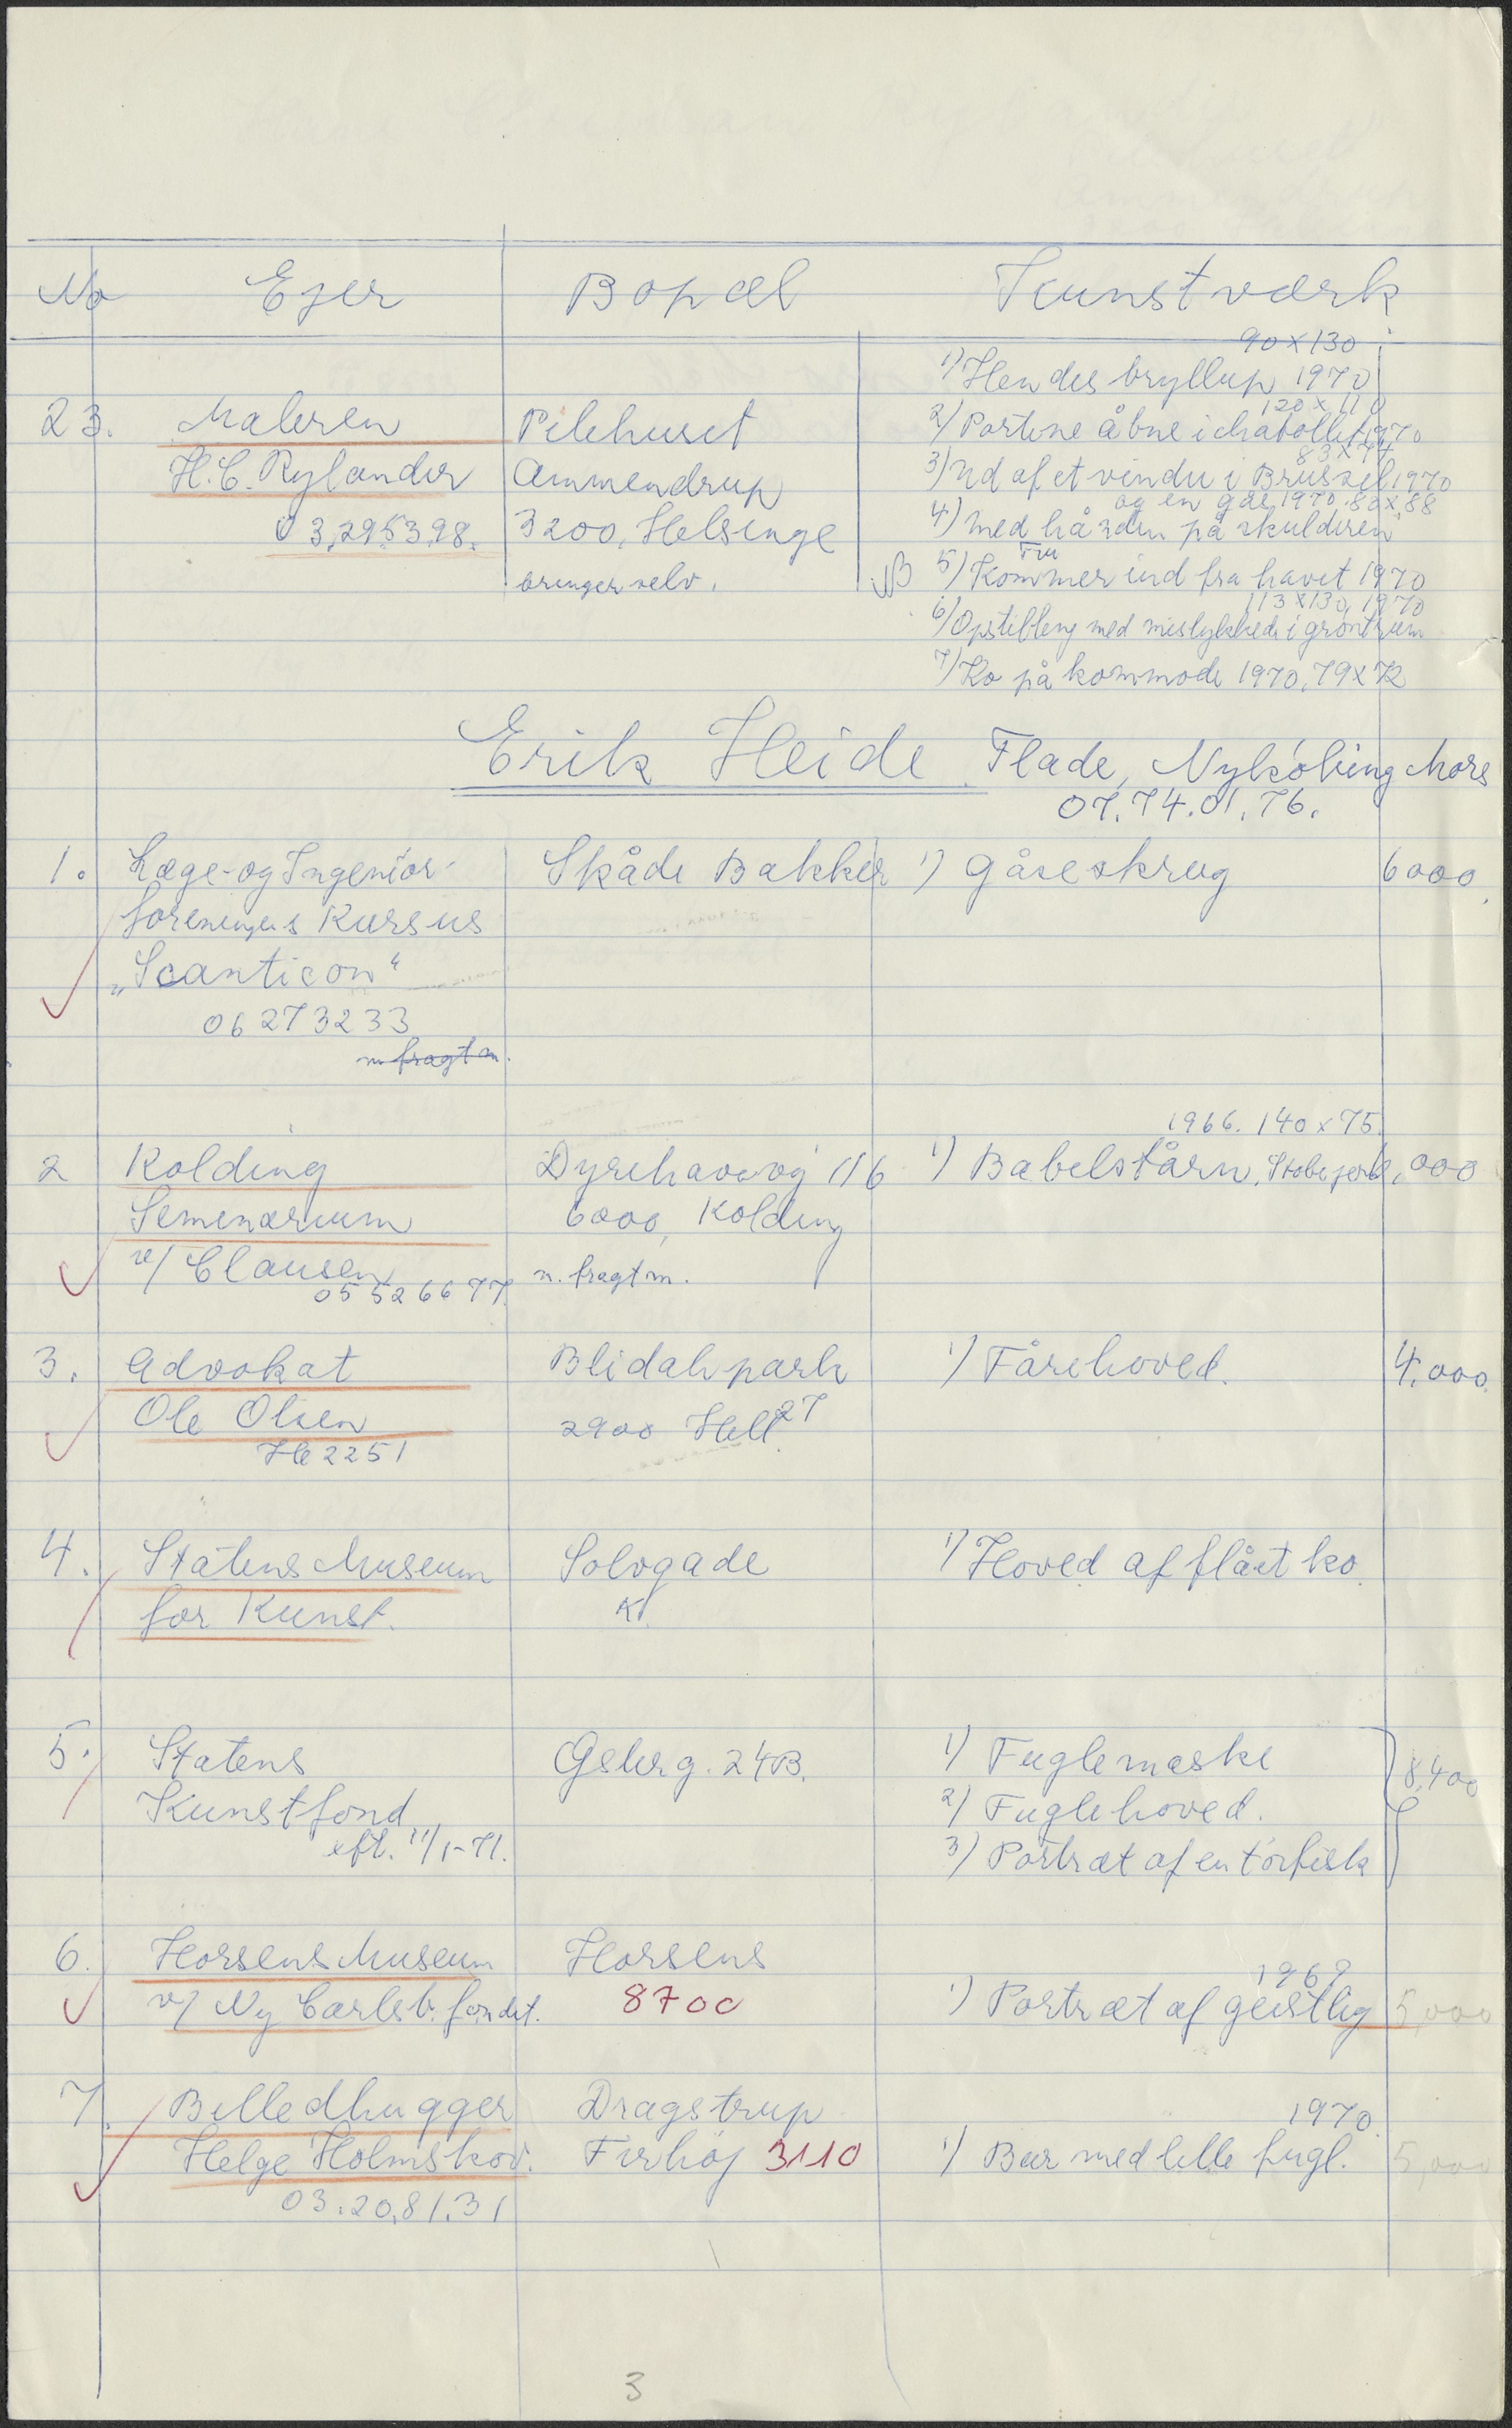 No Ejer Bopæl Kunstværk
90 x 130
1) Hendes bryllup 1970
23. Maleren Pilehuset
120 x 110
2) Portene åbne i chatollet 1970
83 x 77
H. C. Rylander Ammendrup
3) Ud af et vindu i Bruxel 1970
og en gås, 1970. 80 x 88
03,295398. 3200, Helsinge
4) Med hånden på skulderen
bringer selv.
Fru
5) Kommer ind fra havet 1970
113 x 130, 1970
6) Opstilling med mislykkede i grønt rum
7) Ko på kommode 1970, 79 x 72
Erik Heide Flade, Nykøbing Mors
07.74.01.76.
1. Læge- og Ingeniør- Skåde Bakker 1) Gåseskrog 6000,
foreningens Kursus
„Scanticon“
06 273233
m fragtm.
1966. 140 x 75.
2 Kolding Dyrehavevej 116 1) Babelstårn, Støbejern ,000
Seminarium 6000, Kolding
v/ Clausen m. fragtm.
05 526677.
3. Advokat Blidahpark 1) Fårehoved. 4,000.
Ole Olsen 27
2900 Hell.
He 2251
4. Statens Museum Sølvgade 1) Hoved af flået ko.
for Kunst. K.
5. Statens Gslerg. 24B. 1) Fuglemaske 8,400
Kunstfond 2) Fuglehoved.
eft. 11/1-71. 3) Portræt af en tørfisk
6. Horsens Museum Horsens
1969
v/ Ny Carlsb. fondet. 8700 1) Portræt af geistlig 5,000
7. Billedhugger Dragstrup
1970.
Helge Holmskov. Firhøj 3110 1) Bur med lille fugl. 5,000
03.20.81.31
3